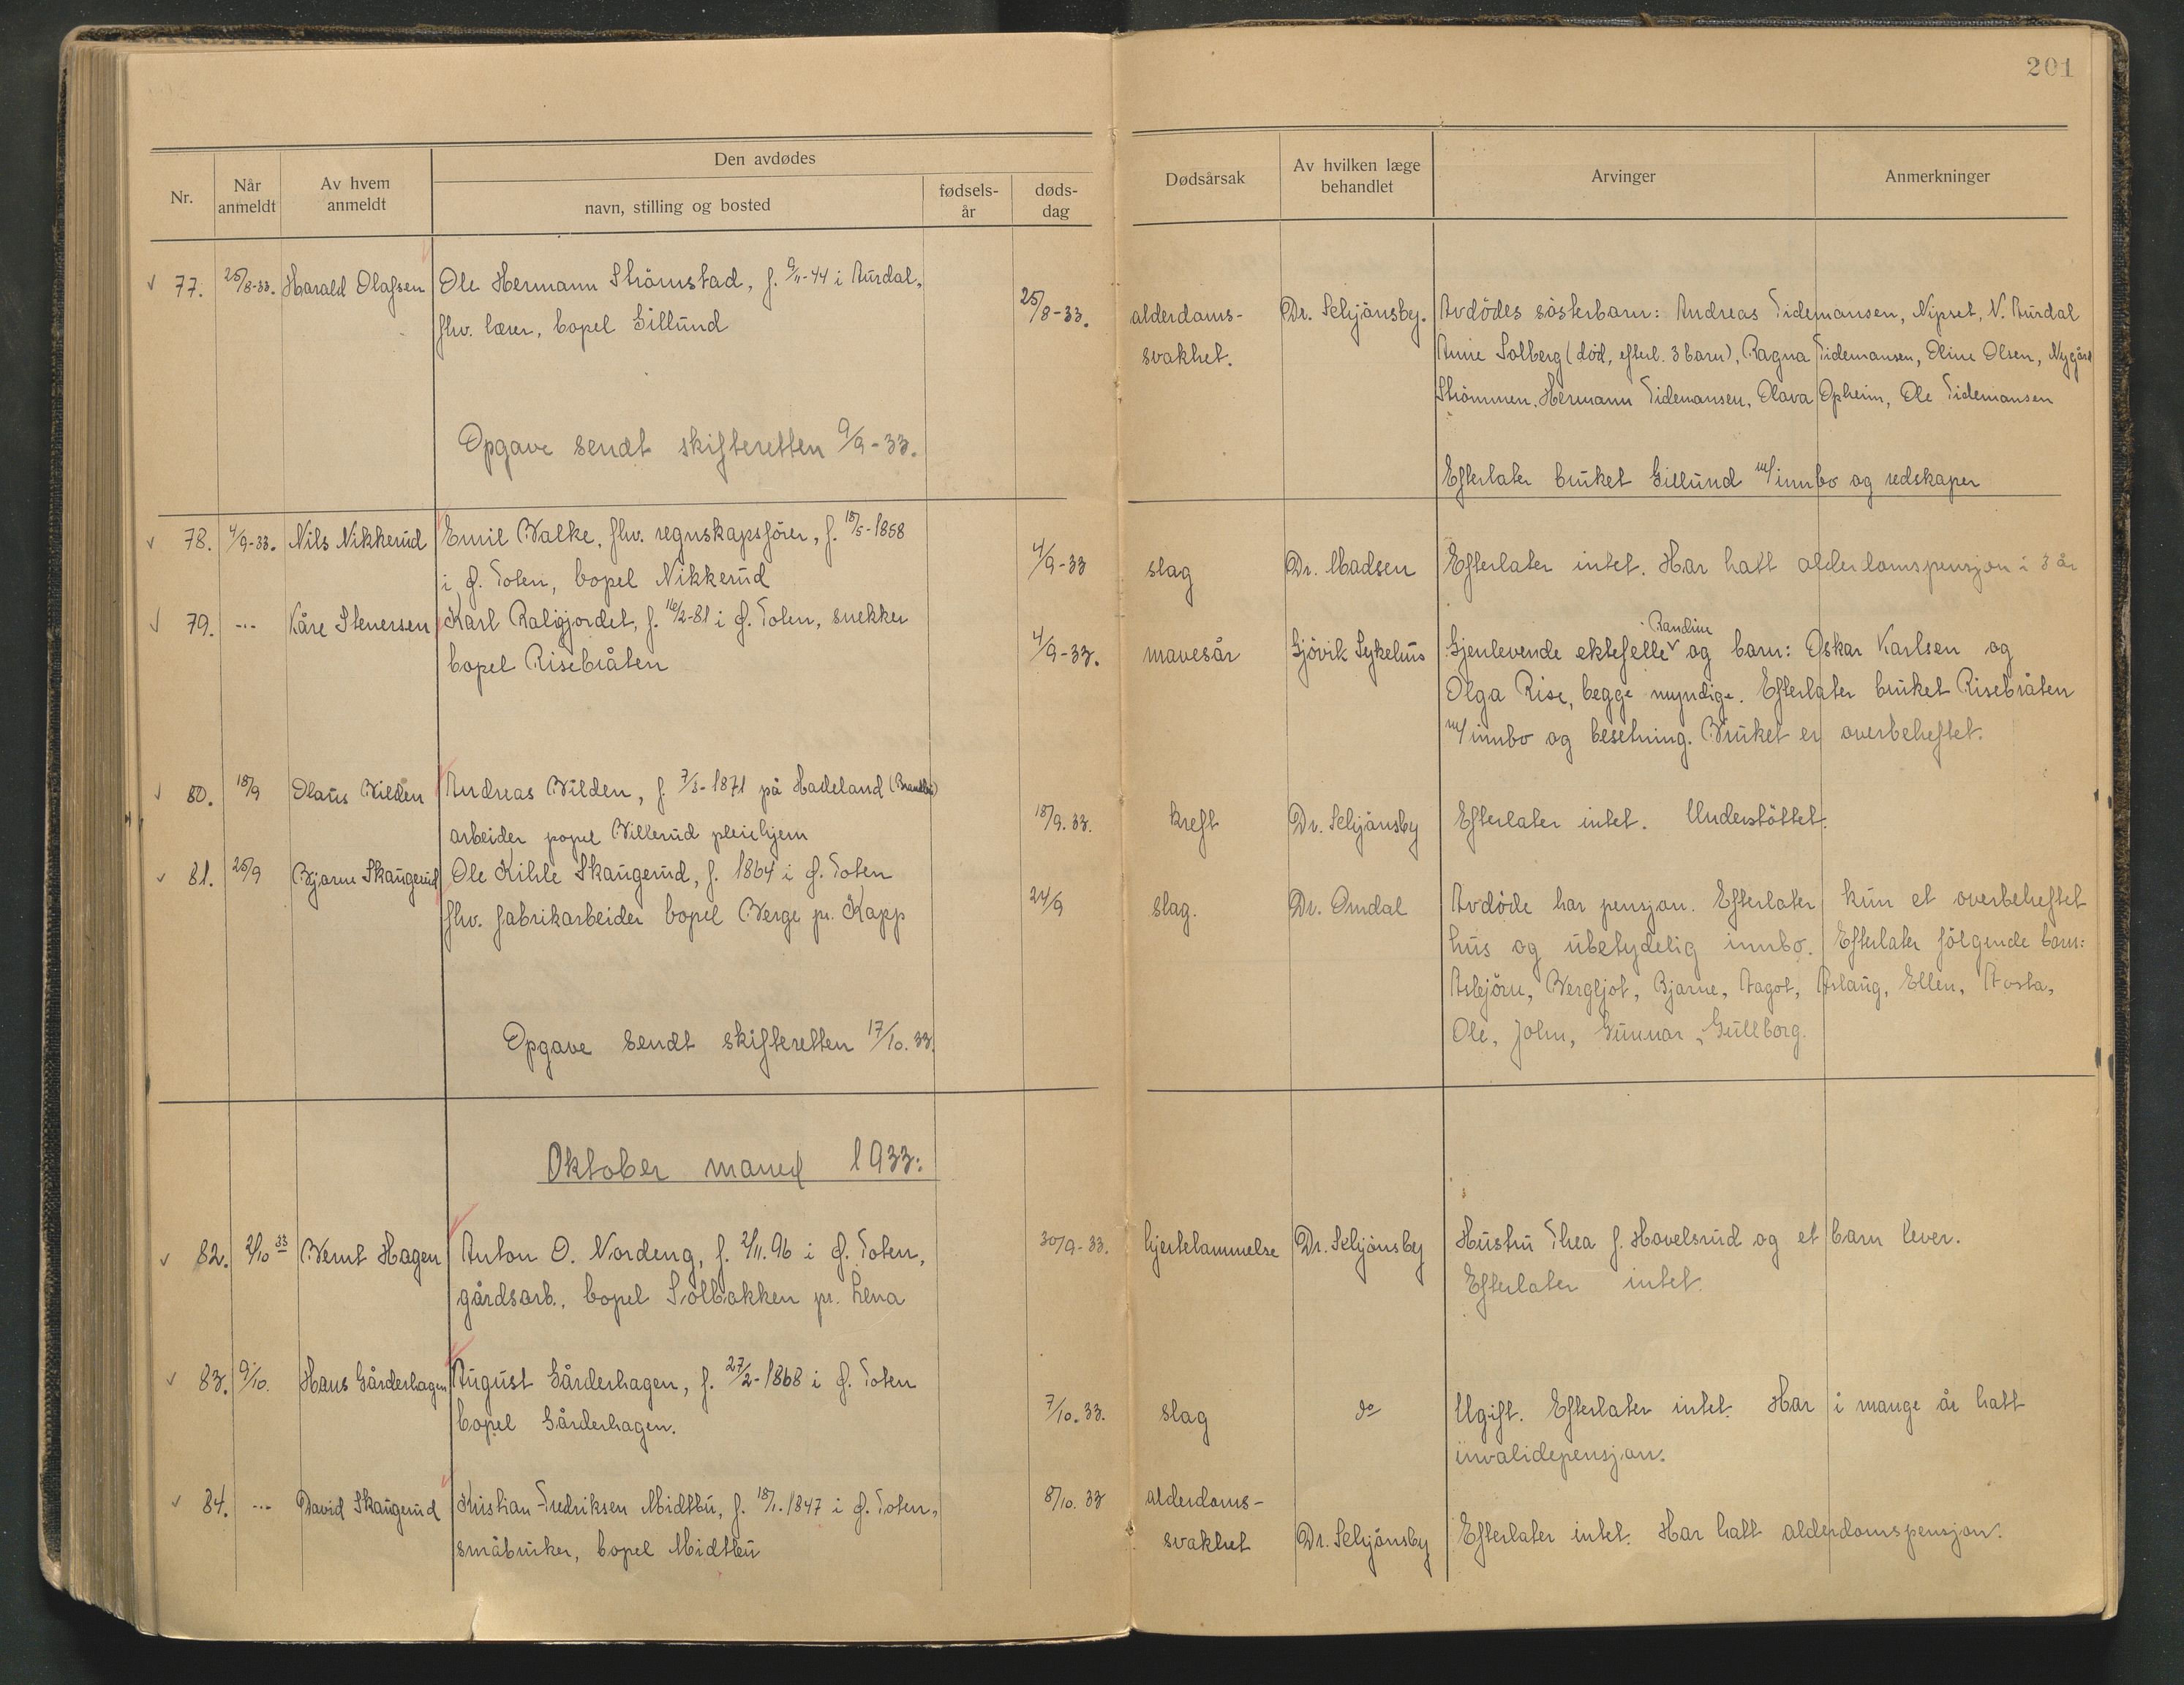 201
Nr.
Når anmeldt
Av hvem anmeldt
Den avdødes
navn, stilling og bosted
fødsels-år
døds-dag
Dødsårsak
Av hvilken læge behandlet
Arvinger
Anmerkninger
77. 25/8-33. Harald Olafsen Ole Hermann Strömstad, f. 9/11-44 i Aurdal,
fhv. lærer, bopel Gillund
25/8-33. alderdoms-svakhet. Dr. Schjönsby.
Avdödes sösterbarn: Andreas Tidemansen, Nipset, N. Aurdal
Anne Solberg (död, efterl. 3 barn), Ragna Tidemansen, Oline Olsen, Nygård
Strömmen, Hermann Tidemansen, Olava Opheim, Ole Tidemansen
Opgave sendt skifteretten 9/9-33.
Efterlater bruket Gillund m/innbo og redskaper
78. 4/9-33. Nils Nikkerud Emil Balke, fhv. regnskapsförer, f. 18/5-1858
i Ø. Toten, bopel Nikkerud
4/9-33 slag Dr. Madsen Efterlater intet. Har hatt alderdomspensjon i 3 år
79. -"- Kåre Stenersen Karl Raligjordet, f. 16/2-81 i Ø. Toten, snekker
bopel Risebråten
4/9-33. mavesår Gjövik Sykehus Gjenlevende ektefelle Randine og barn: Oskar Karlsen og
Olga Rise, begge myndige. Efterlater bruket Risebråten
m/innbo og besetning. Bruket er overbeheftet.
80. 18/9 Olaus Bilden Andreas Bilden, f. 7/3-1871 på Hadeland (Brandbu)
arbeider popel Billerud pleiehjem
18/9.33. kreft Dr. Schjönsby Efterlater intet. Understöttet.
81. 25/9 Bjarne Skaugerud Ole Kihle Skaugerud, f. 1864 i Ø. Toten
fhv. fabrikarbeider bopel Berge pr. Kapp
24/9 slag. Dr. Omdal Avdöde har pensjon. Efterlater kun et overbeheftet
hus og ubetydelig innbo. Efterlater fölgende barn:
Asbjörn, Bergljot, Bjarne, Aagot, Aslaug, Ellen, Aasta,
Ole, John, Gunnar, Gullborg.
Opgave sendt skifteretten 17/10.33.
Oktober maned 1933:
82. 2/10 33 Bernt Hagen Anton O. Nordeng, f. 2/11.96 i Ø. Toten,
gårdsarb., bopel Solbakken pr. Lena
30/9-33. hjertelammelse Dr. Schjönsby Hustru Thea f. Hovelsrud og et barn lever.
Efterlater intet.
83. 9/10. Hans Gårderhagen August Gårderhagen, f. 27/2-1868 i Ø. Toten
bopel Gårderhagen.
7/10.33. slag do Ugift. Efterlater intet. Har i mange år hatt
invalidepensjon.
84. -"- David Skaugerud Kristian Fredriksen Midtbu, f. 18/1.1847 i Ø. Toten,
småbruker, bopel Midtbu
8/10.33 alderdoms-
svakhet Dr. Schjönsby Efterlater intet. Har hatt alderdomspensjon.